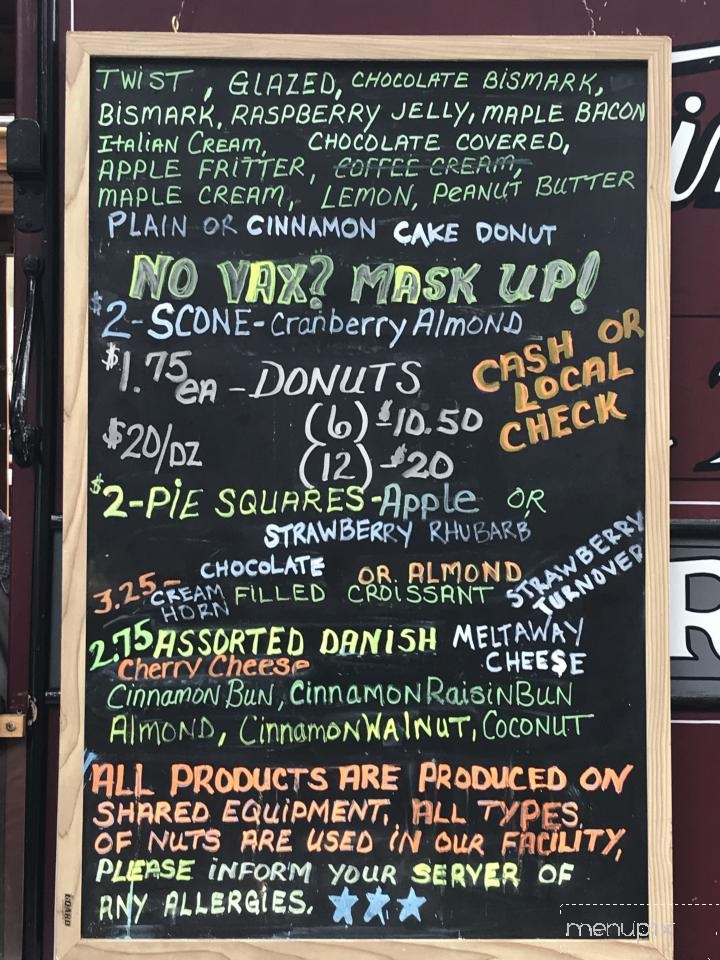 TWIST, GLAZED, CHOCOLATE BISMARK,
BISMARK, RASPBERRY JELLY, MAPLE BACON
Italian Cream, CHOCOLATE COVERED,
APPLE FRITTER, COFFEE CREAM,
MAPLE CREAM, LEMON, PEANUT BUTTER
PLAIN OR CINNAMON CAKE DONUT
NO VAX? MASK UP!
$2-SCONE-Cranberry Almond
CASH OR
LOCAL
CHECK
$1.75 EA - DONUTS
(6) - $10.50
$20/DZ
(12) - $20
$2-PIE SQUARES-Apple OR
STRAWBERRY RHUBARB
CHOCOLATE OR ALMOND
3.25- CREAM HORN FILLED CROISSANT
STRAWBERRY
TURNOVER
2.75 ASSORTED DANISH MELTAWAY
Cherry Cheese CHEESE
Cinnamon Bun, Cinnamon Raisin Bun
Almond, Cinnamon Walnut, Coconut
ALL PRODUCTS ARE PRODUCED ON
SHARED EQUIPMENT, ALL TYPES
OF NUTS ARE USED IN OUR FACILITY,
PLEASE INFORM YOUR SERVER OF
ANY ALLERGIES.
BOARD
menupix